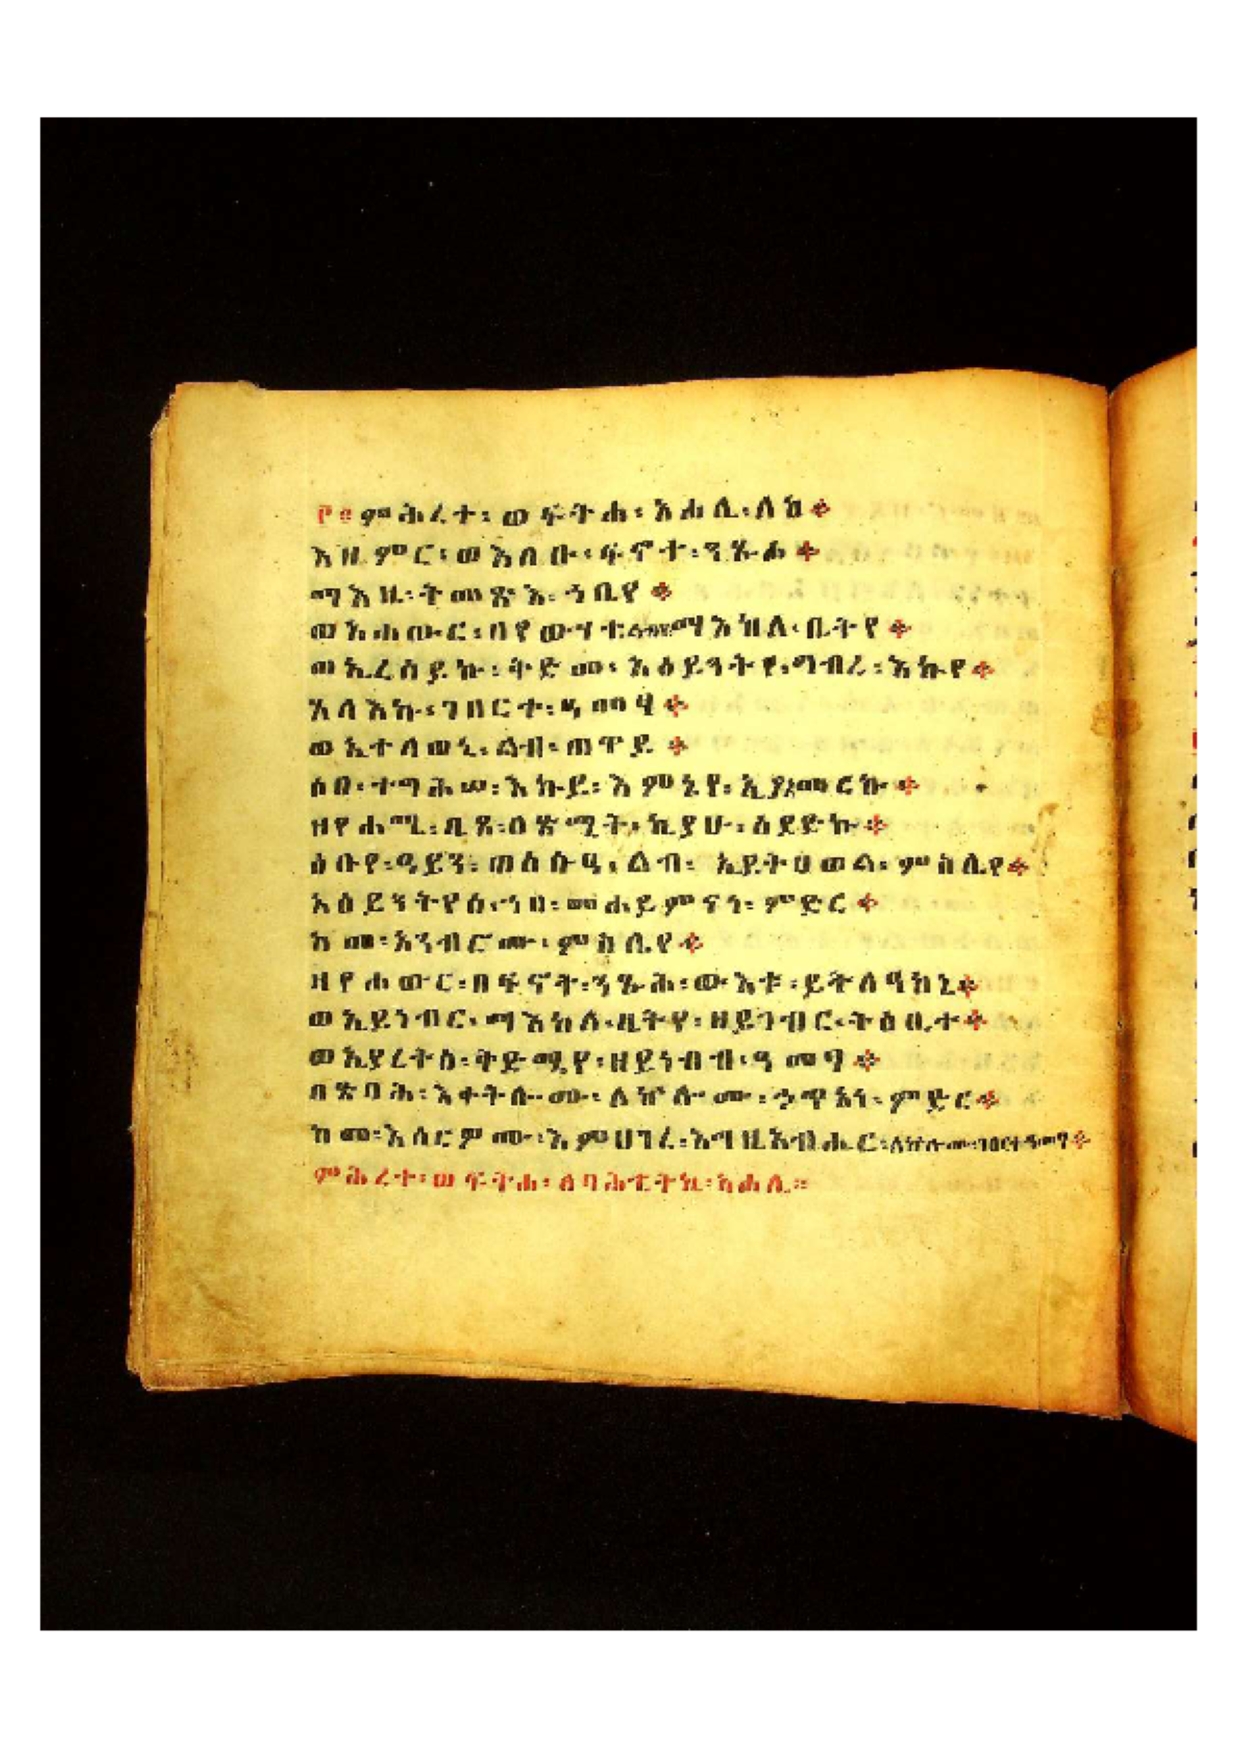 ፻፩ምሕረተ፡ወፍትሐ፡አሐሊ፡ለከ፨
እዜምር፡ወእሌቡ፡ፍኖተ፡ንጹሐ፨
ማእዜ፡ትመጽእ፡ኀቤየ፨
ወአሐውር፡በየውሃተ፡ልብየ፡ማእከለ፡ቤትየ፨
ወኢረሰይኩ፡ቅድመ፡አዕይንትየ፡ግብረ፡እኩየ፨
ጸላእኩ፡ገበርተ፡ዓመፃ፨
ወኢተለወኒ፡ልብ፡ጠዋይ፨
ሶበ፡ተግሕሠ፡እኩይ፡እምኔየ፡ኢያእመርኩ፨
ዘየሐሚ፡ቢጾ፡በጽሚት፡ኪያሁ፡ሰደድኩ፨
ዕቡየ፡ዓይን፡ወስሱዓ፡ልብ፡ኢይትሀወል፡ምስሌየ፨
አዕይንትየሰ፡ኀበ፡መሐይምናነ፡ምድር፨
ከመ፡አንብሮሙ፡ምስሌየ፨
ዘየሐውር፡በፍኖት፡ንጹሕ፡ውእቱ፡ይትለአከኒ፨
ወኢይነብር፡ማእከለ፡ቤትየ፡ዘይገብር፡ትዕቢተ፨
ወኢያረትዕ፡ቅድሜየ፡ዘይነብብ፡ዓመፃ፨
በጽባሕ፡እቀትሎሙ፡ለኵሎሙ፡ኃጥአነ፡ምድር፨
ከመ፡እሠርዎሙ፡እምሀገረ፡እግዚአብሔር፡ለኵሎሙ፡ገበርተ፡ዓመፃ፨
ምሕረተ፡ወፍትሐ፡ለባሕቲትከ፡አሐሊ።